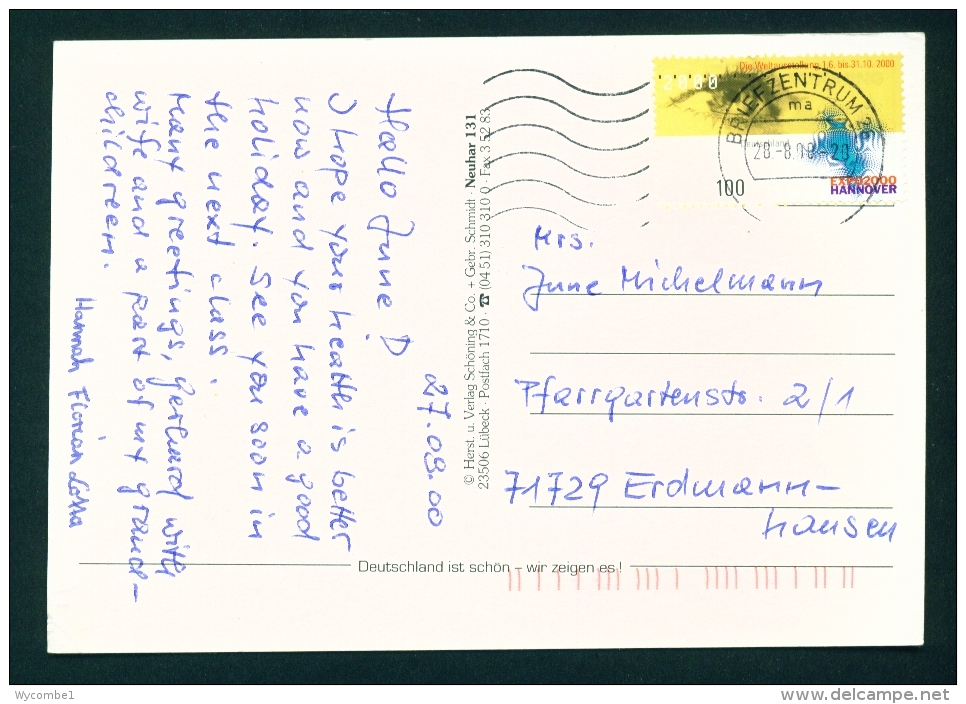 27.08.00
Hallo June!
I hope your health is better
now and you have a good
holiday. See you soon in
the next class.
Many greetings, Gerhard with
wife and a part of my grand-
children.
Hannah Florian
© Herst. u. Verlag Schöning & Co. + Gebr. Schmidt · Neuhar 131
23506 Lübeck · Postfach 1710 · ☎ (04 51) 310 310 0 · Fax 3 52 83
Die Weltausstellung 1.6. bis 31.10. 2000
2000
BRIEFZENTRUM
ma
100
EXPO2000
HANNOVER
Mrs.
June Michelmann
Pfarrgartenstr. 2/1
71729 Erdmann-
hausen
Deutschland ist schön – wir zeigen es!
Wycombe1
www.delcampe.net